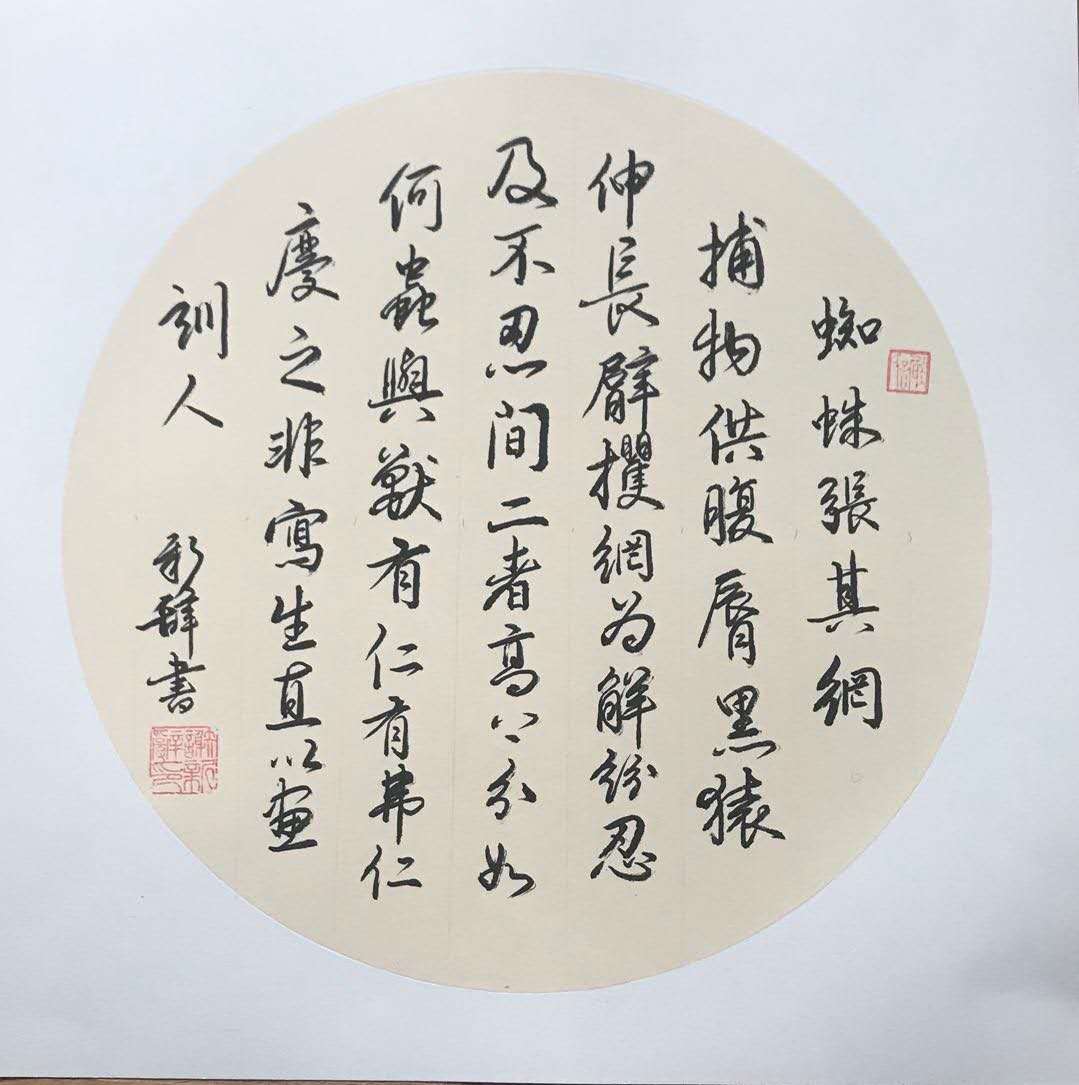 蜘蛛張其網
捕物供腹脣黑猿
伸長臂攫網为解紛忍
及不忍間二者高下分如
何蟲與獸有仁有弗仁
慶之非寫生直以畫
訓人
新辞書